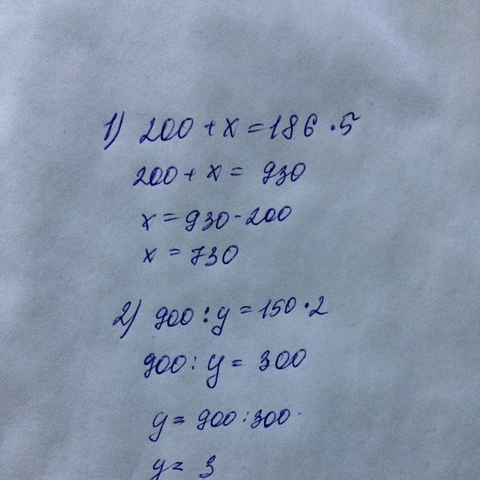 1) 200 + x = 186 · 5
200 + x = 930
x = 930 - 200
x = 730
2) 900 : y = 150 · 2
900 : y = 300
y = 900 : 300
y = 3